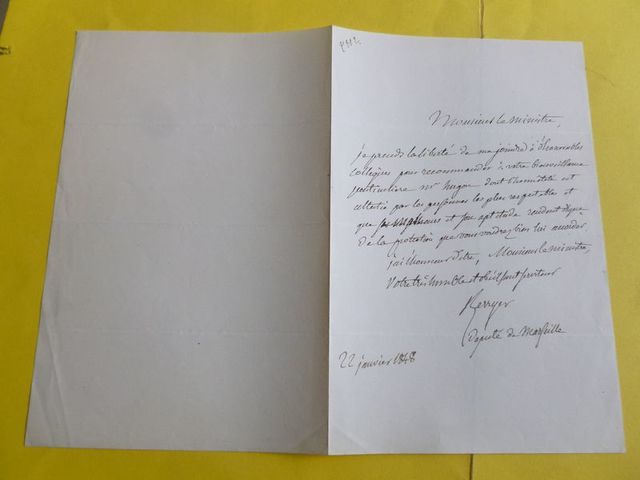 Monsieur le ministre,
je prends la liberté de me joindre à d'honorables
collègues pour recommander à votre bienveillance
particulière mr hugon dont l'honnêteté est
attestée par les personnes les plus respectables et
que et son aptitude rendent digne
de la protection que vous voudrez bien lui accorder.
j'ai l'honneur d'être, Monsieur le ministre,
Votre très humble et obéissant serviteur
Berryer
député de Marseille
22 janvier 1848